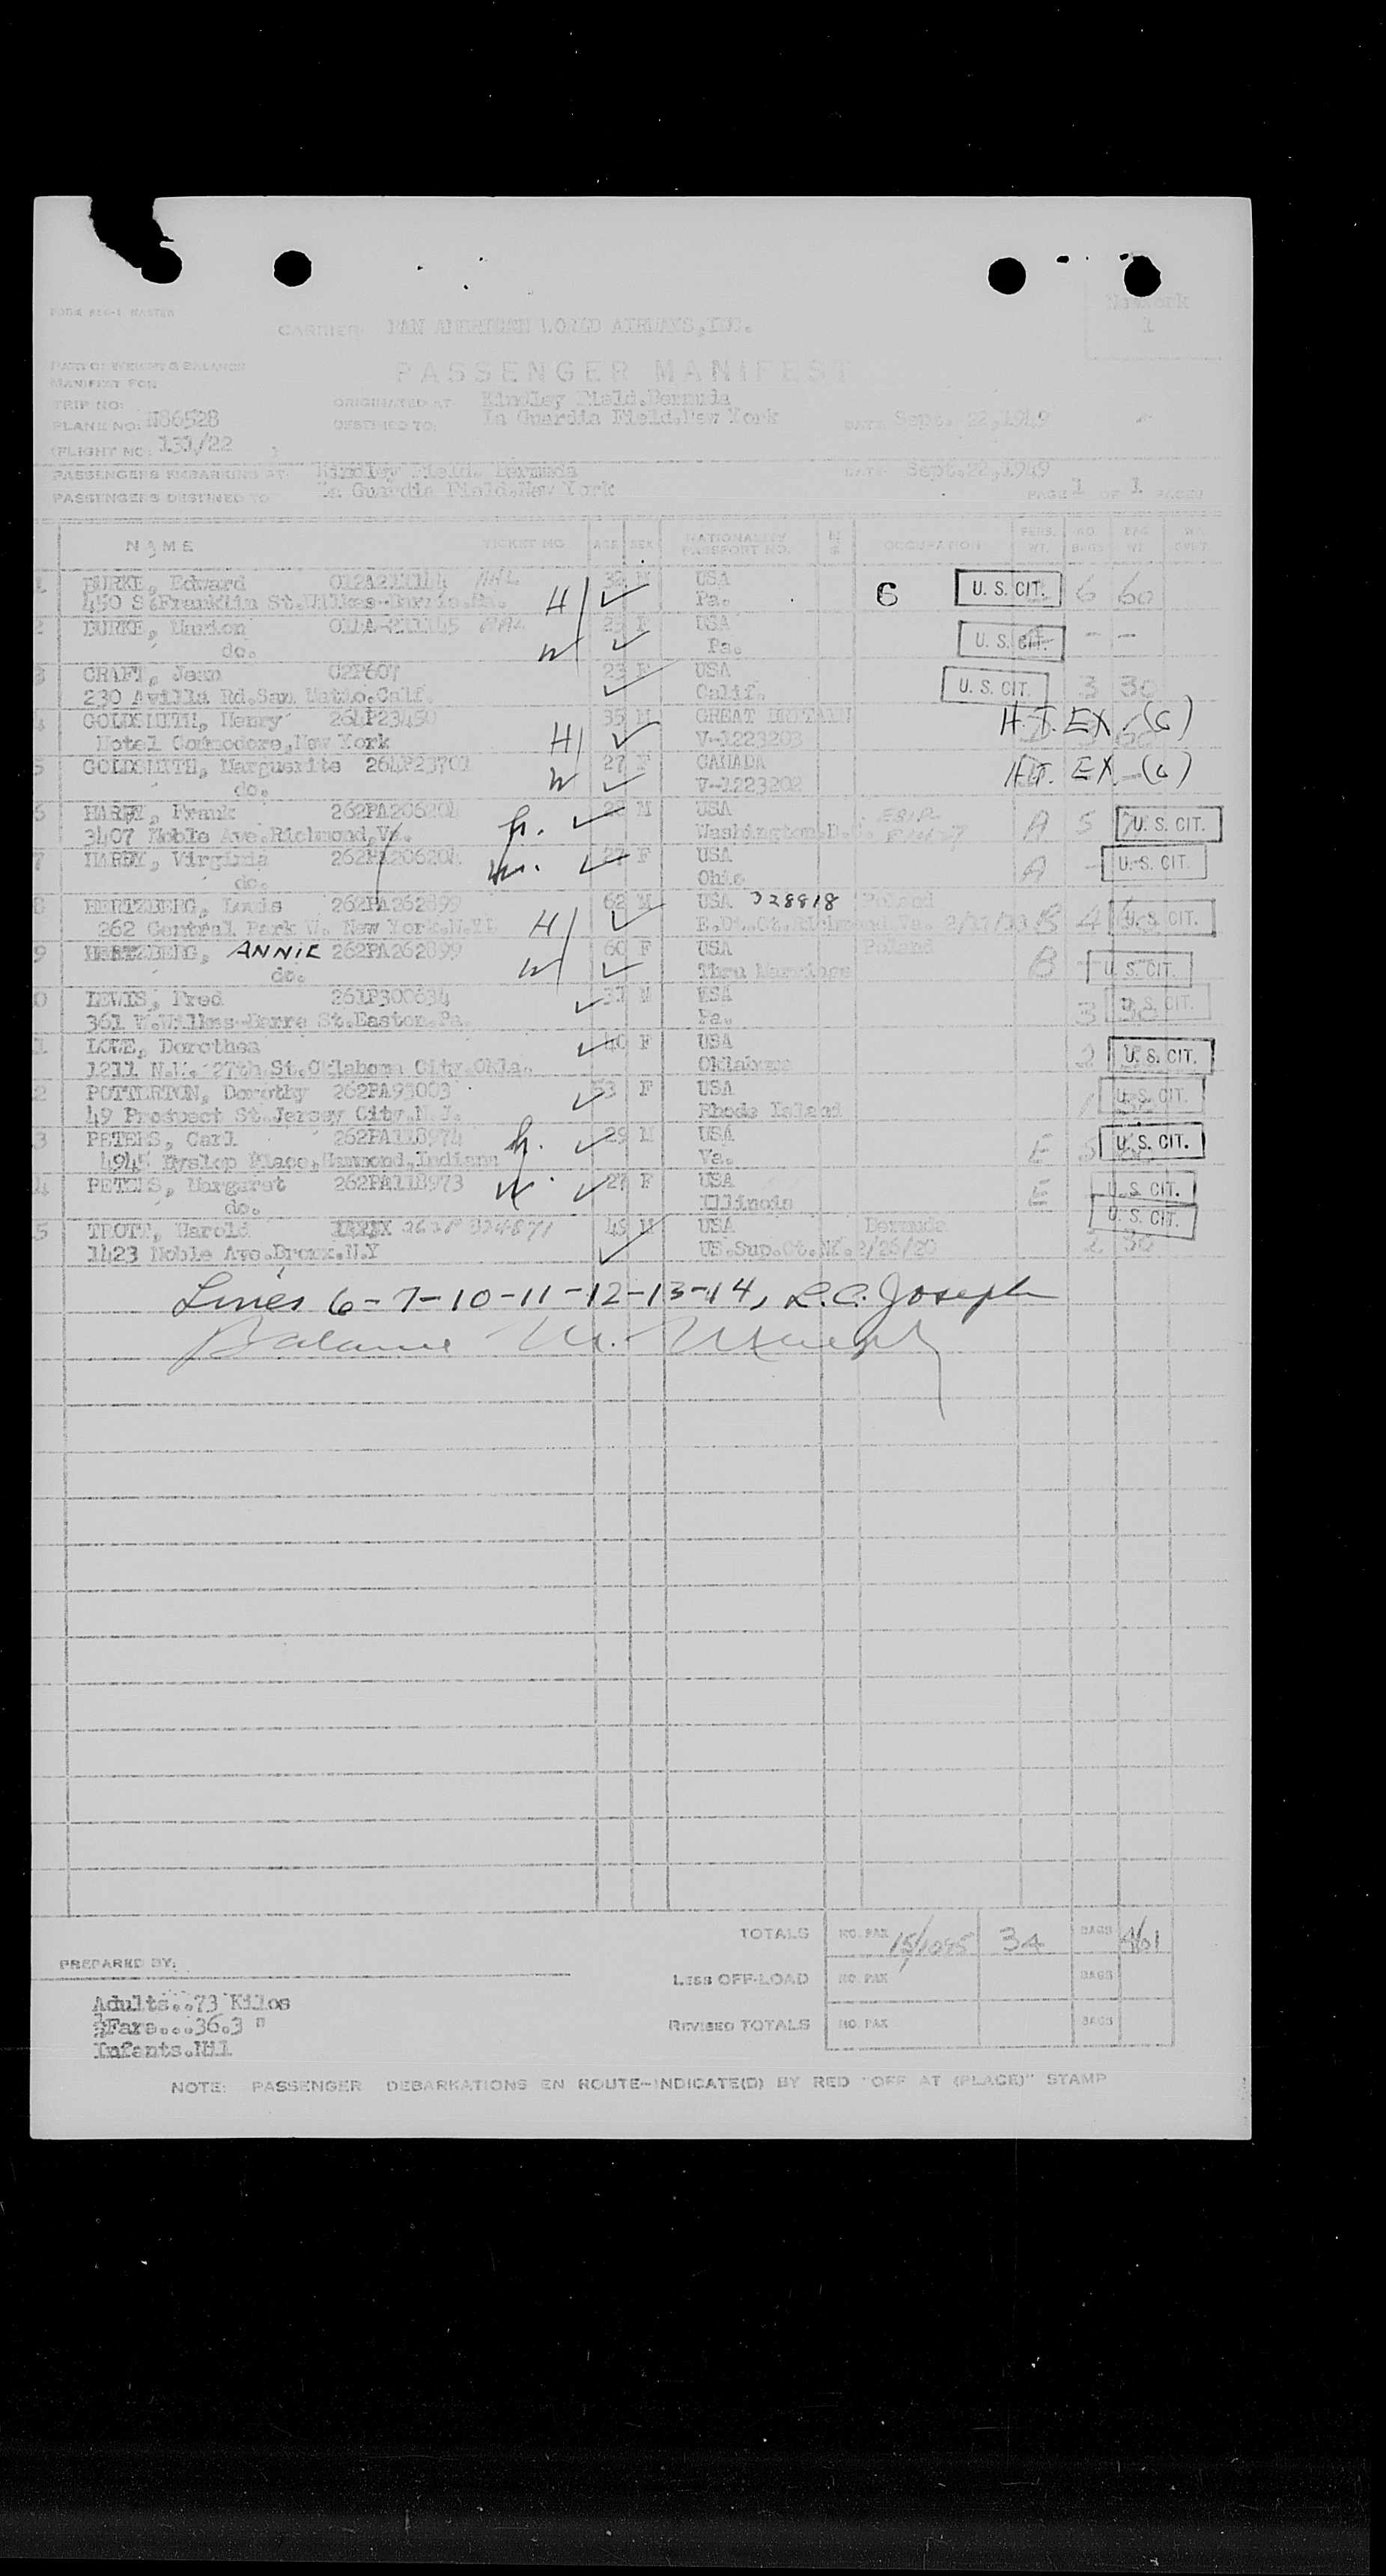 CARRIER: PAN AMERICAN WORLD AIRWAYS, INC.
PASSENGER MANIFEST
PART OF WEIGHT & BALANCE
MANIFEST FOR
TRIP NO:
ORIGINATED AT Kindley Field.Bermuda
PLANE NO: N86528
DESTINED TO: La Guardia Field.New York
DATE Sept. 22,1949
(FLIGHT NO: 131/22 )
PASSENGERS EMBARKING AT Kindley Field. Bermuda
DATE Sept.22,1949
PASSENGERS DESTINED TO La Guardia Field.New York
PAGE 1 OF 1 PAGES
NAME TICKET NO AGE SEX NATIONALITY PASSPORT NO. OCCUPATION PERS. WT. NO. BAGS BAG WT.
1 BURKE, Edward 32 M USA
450 S.Franklin St.Wilkes-Barre.Pa. H Pa. 6 U. S. CIT. 6 60
2 BURKE, Marion 23 F USA
do. W Pa. U. S. CIT. - -
3 CRAFT, Jean 23 F USA
230 Avilla Rd.San Mateo.Calif. Calif. U. S. CIT. 3 30
4 GOLDSMITH, Henry 261P23450 35 M GREAT BRITAIN
Hotel Commodore,New York H V-1223203 H.T. EX. (6)
5 GOLDSMITH, Marguerite 27 F CANADA
do. W V-1223202 H.T. EX-(6)
6 HARDY, Frank 262PA206204 28 M USA
3407 Noble Ave.Richmond,Va. h. Washington.D. A 5 U. S. CIT.
7 HARDY, Virginia 262PA206204 27 F USA
do. w. Ohio A - U. S. CIT.
8 HERTZBERG, Louis 262PA262899 62 M USA 328818 Poland
262 Central Park W. New York.N.Y. H Richmond Va. B 4 U. S. CIT.
9 HERTZBERG, ANNIE 262PA262899 60 F USA Poland
do. W Thru Marriage B - U. S. CIT.
0 LEWIS, Fred 261P300634 31 M USA
361 W.Wilkes-Barre St.Easton.Pa. Pa. 3 U. S. CIT.
1 LOVE, Dorothea 40 F USA
1211 N.W. 27th St.Oklahoma City.Okla. Oklahoma 2 U. S. CIT.
2 POTTERTON, Dorothy 262PA93003 53 F USA
49 Prospect St.Jersey City.N.J. Rhode Island 1 U. S. CIT.
3 PETERS, Carl 262PA118974 h. 29 M USA
4945 Hyslop Place.Hammond.Indiana Va. E 5 U. S. CIT.
4 PETERS, Margaret 262PA118973 w. 27 F USA
do. Illinois E U. S. CIT.
5 TROTT, Harold 49 M USA Bermuda U. S. CIT.
1423 Noble Ave.Bronx.N.Y US.Sup.Ct.NY. 2/26/20 2 30
Lines 6-7-10-11-12-13-14, L.C. Joseph
Balance
TOTALS NO. PAX 15/1095 34 BAGS 461
PREPARED BY:
LESS OFF-LOAD NO. PAX BAGS
Adults..73 Kilos
½Fare...36.3 "
REVISED TOTALS NO. PAX BAGS
Infants.Nil
NOTE: PASSENGER DEBARKATIONS EN ROUTE-INDICATE(D) BY RED "OFF AT (PLACE)" STAMP